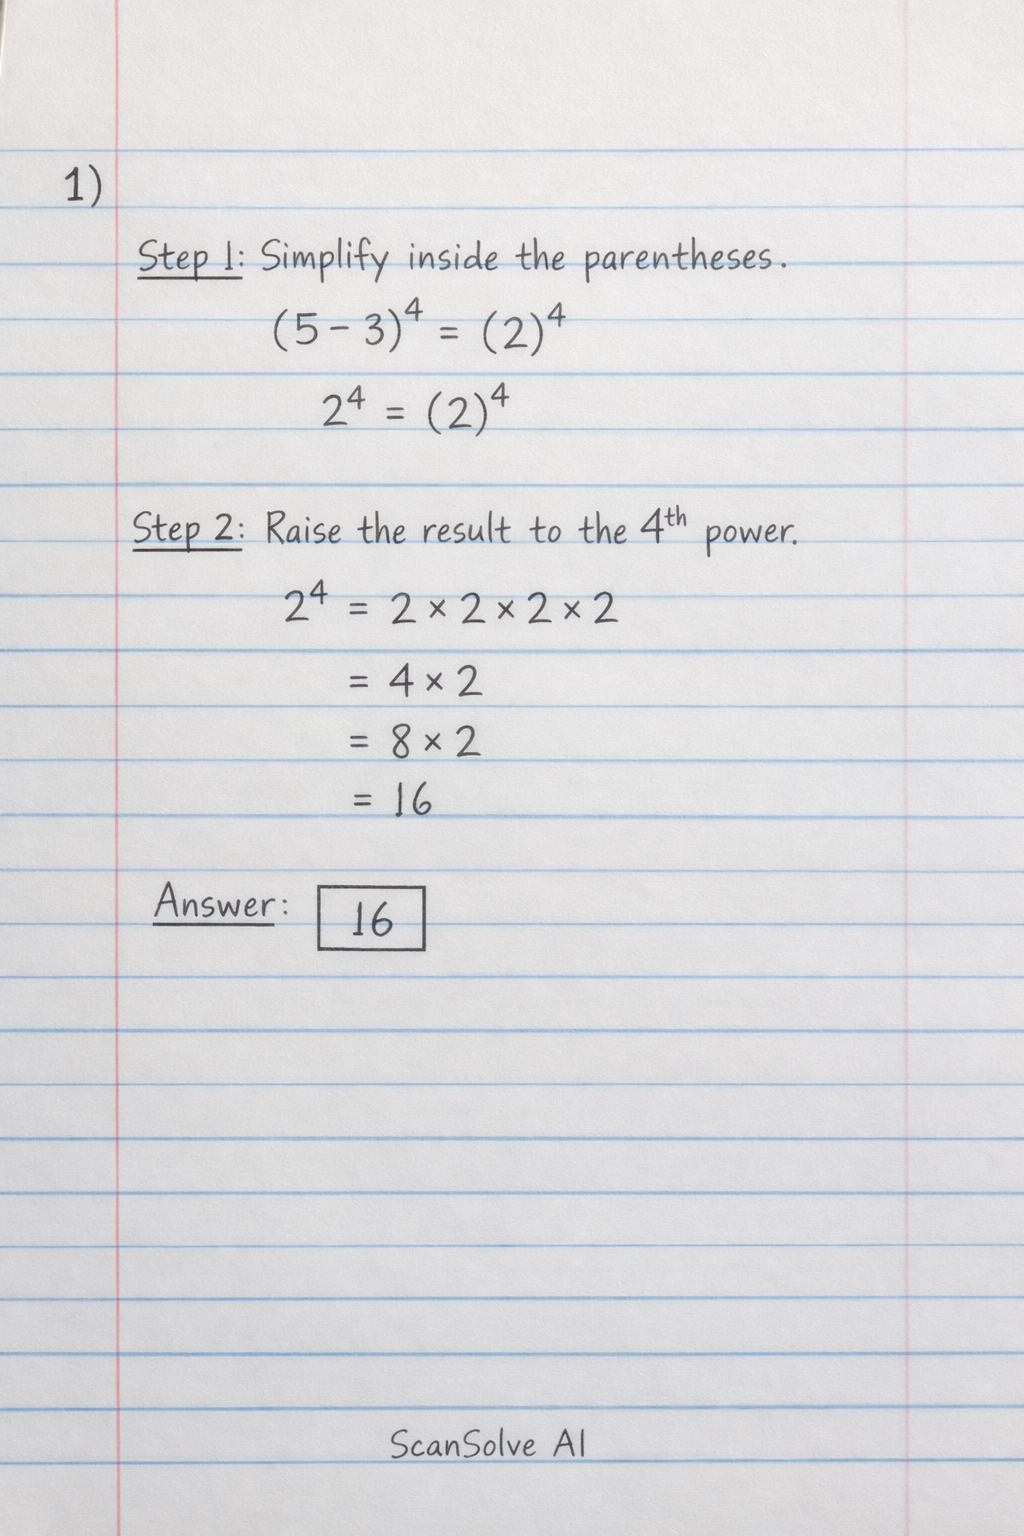 1)
Step 1: Simplify inside the parentheses.
(5 - 3)⁴ = (2)⁴
2⁴ = (2)⁴
Step 2: Raise the result to the 4ᵗʰ power.
2⁴ = 2 × 2 × 2 × 2
= 4 × 2
= 8 × 2
= 16
Answer: 16
ScanSolve AI